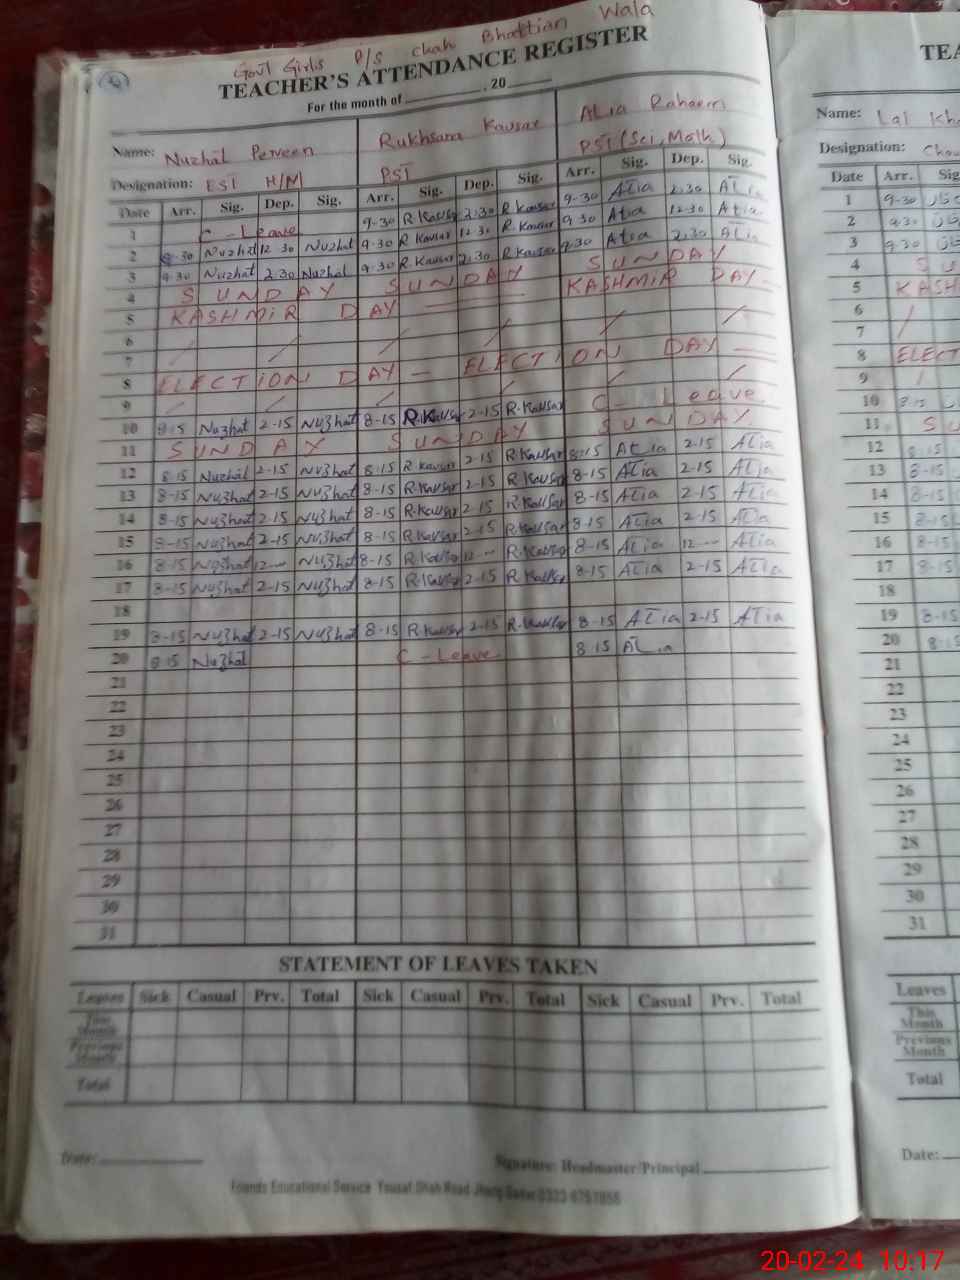 Govt Girls P/S chah Bhattian Wala
TEACHER'S ATTENDANCE REGISTER
For the month of , 20
Name: Nuzhat Perveen Rukhsana Kausar Alia Raheem
Designation: EST H/M PST PST (Sci, Math)
Date Arr. Sig. Dep. Sig. Arr. Sig. Dep. Sig. Arr. Sig. Dep. Sig.
1 C - Leave 9-30 R Kausar 2-30 R Kausar 9-30 Alia 2-30 Alia
2 9-30 Nuzhat 12 30 Nuzhat 9-30 R Kausar 12-30 R Kausar 9-30 Alia 12-30 Alia
3 9-30 Nuzhat 2-30 Nuzhat 9-30 R Kausar 2-30 R Kausar 9-30 Alia 2.30 Alia
4 SUNDAY SUNDAY SUNDAY
5 KASHMIR DAY KASHMIR DAY
6 / / / / / /
7
8 ELECTION DAY - ELECTION DAY
9 / / / / / /
10 8-15 Nuzhat 2-15 Nuzhat 8-15 R.Kausar 2-15 R.Kausar C - Leave
11 SUNDAY SUNDAY SUNDAY
12 8 15 Nuzhat 2-15 Nuzhat 8-15 R Kausar 2-15 R.Kausar 8-15 Alia 2-15 Alia
13 8-15 Nuzhat 2-15 Nuzhat 8-15 R.Kausar 2-15 R.Kausar 8-15 Alia 2-15 Alia
14 8-15 Nuzhat 2-15 Nuzhat 8-15 R.Kausar 2-15 R.Kausar 8-15 Alia 2-15 Alia
15 8-15 Nuzhat 2-15 Nuzhat 8-15 R.Kausar 2-15 R.Kausar 8-15 Alia 2-15 Alia
16 8-15 Nuzhat 12-- Nuzhat 8-15 R.Kausar 12-- R.Kausar 8-15 Alia 12-- Alia
17 8-15 Nuzhat 2-15 Nuzhat 8-15 R.Kausar 2-15 R.Kausar 8-15 Alia 2-15 Alia
18
19 8-15 Nuzhat 2-15 Nuzhat 8-15 R.Kausar 2-15 R.Kausar 8-15 Alia 2-15 Alia
20 8 15 Nuzhat C - Leave 8 15 Alia
21
22
23
24
25
26
27
28
29
30
31
STATEMENT OF LEAVES TAKEN
Leaves Sick Casual Prv. Total Sick Casual Prv. Total Sick Casual Prv. Total
This Month
Previous Month
Total
Date:
Signature: Headmaster/Principal
Friends Educational Service Yousaf Shah Road Jhang Sadar
TEA
Name: Lal Kha
Designation: Chow
Date Arr. Sig
1 9-30
2 9.30
3 9.30
4 SU
5 KASH
6 /
7
8 ELECT
9 /
10 8-15
11 SU
12 8.15
13 8-15
14 8-15
15 8-15
16 8-15
17 8-15
18
19 8-15
20 8-15
21
22
23
24
25
26
27
28
29
30
31
Leaves
This Month
Previous Month
Total
Date:
20-02-24 10:17